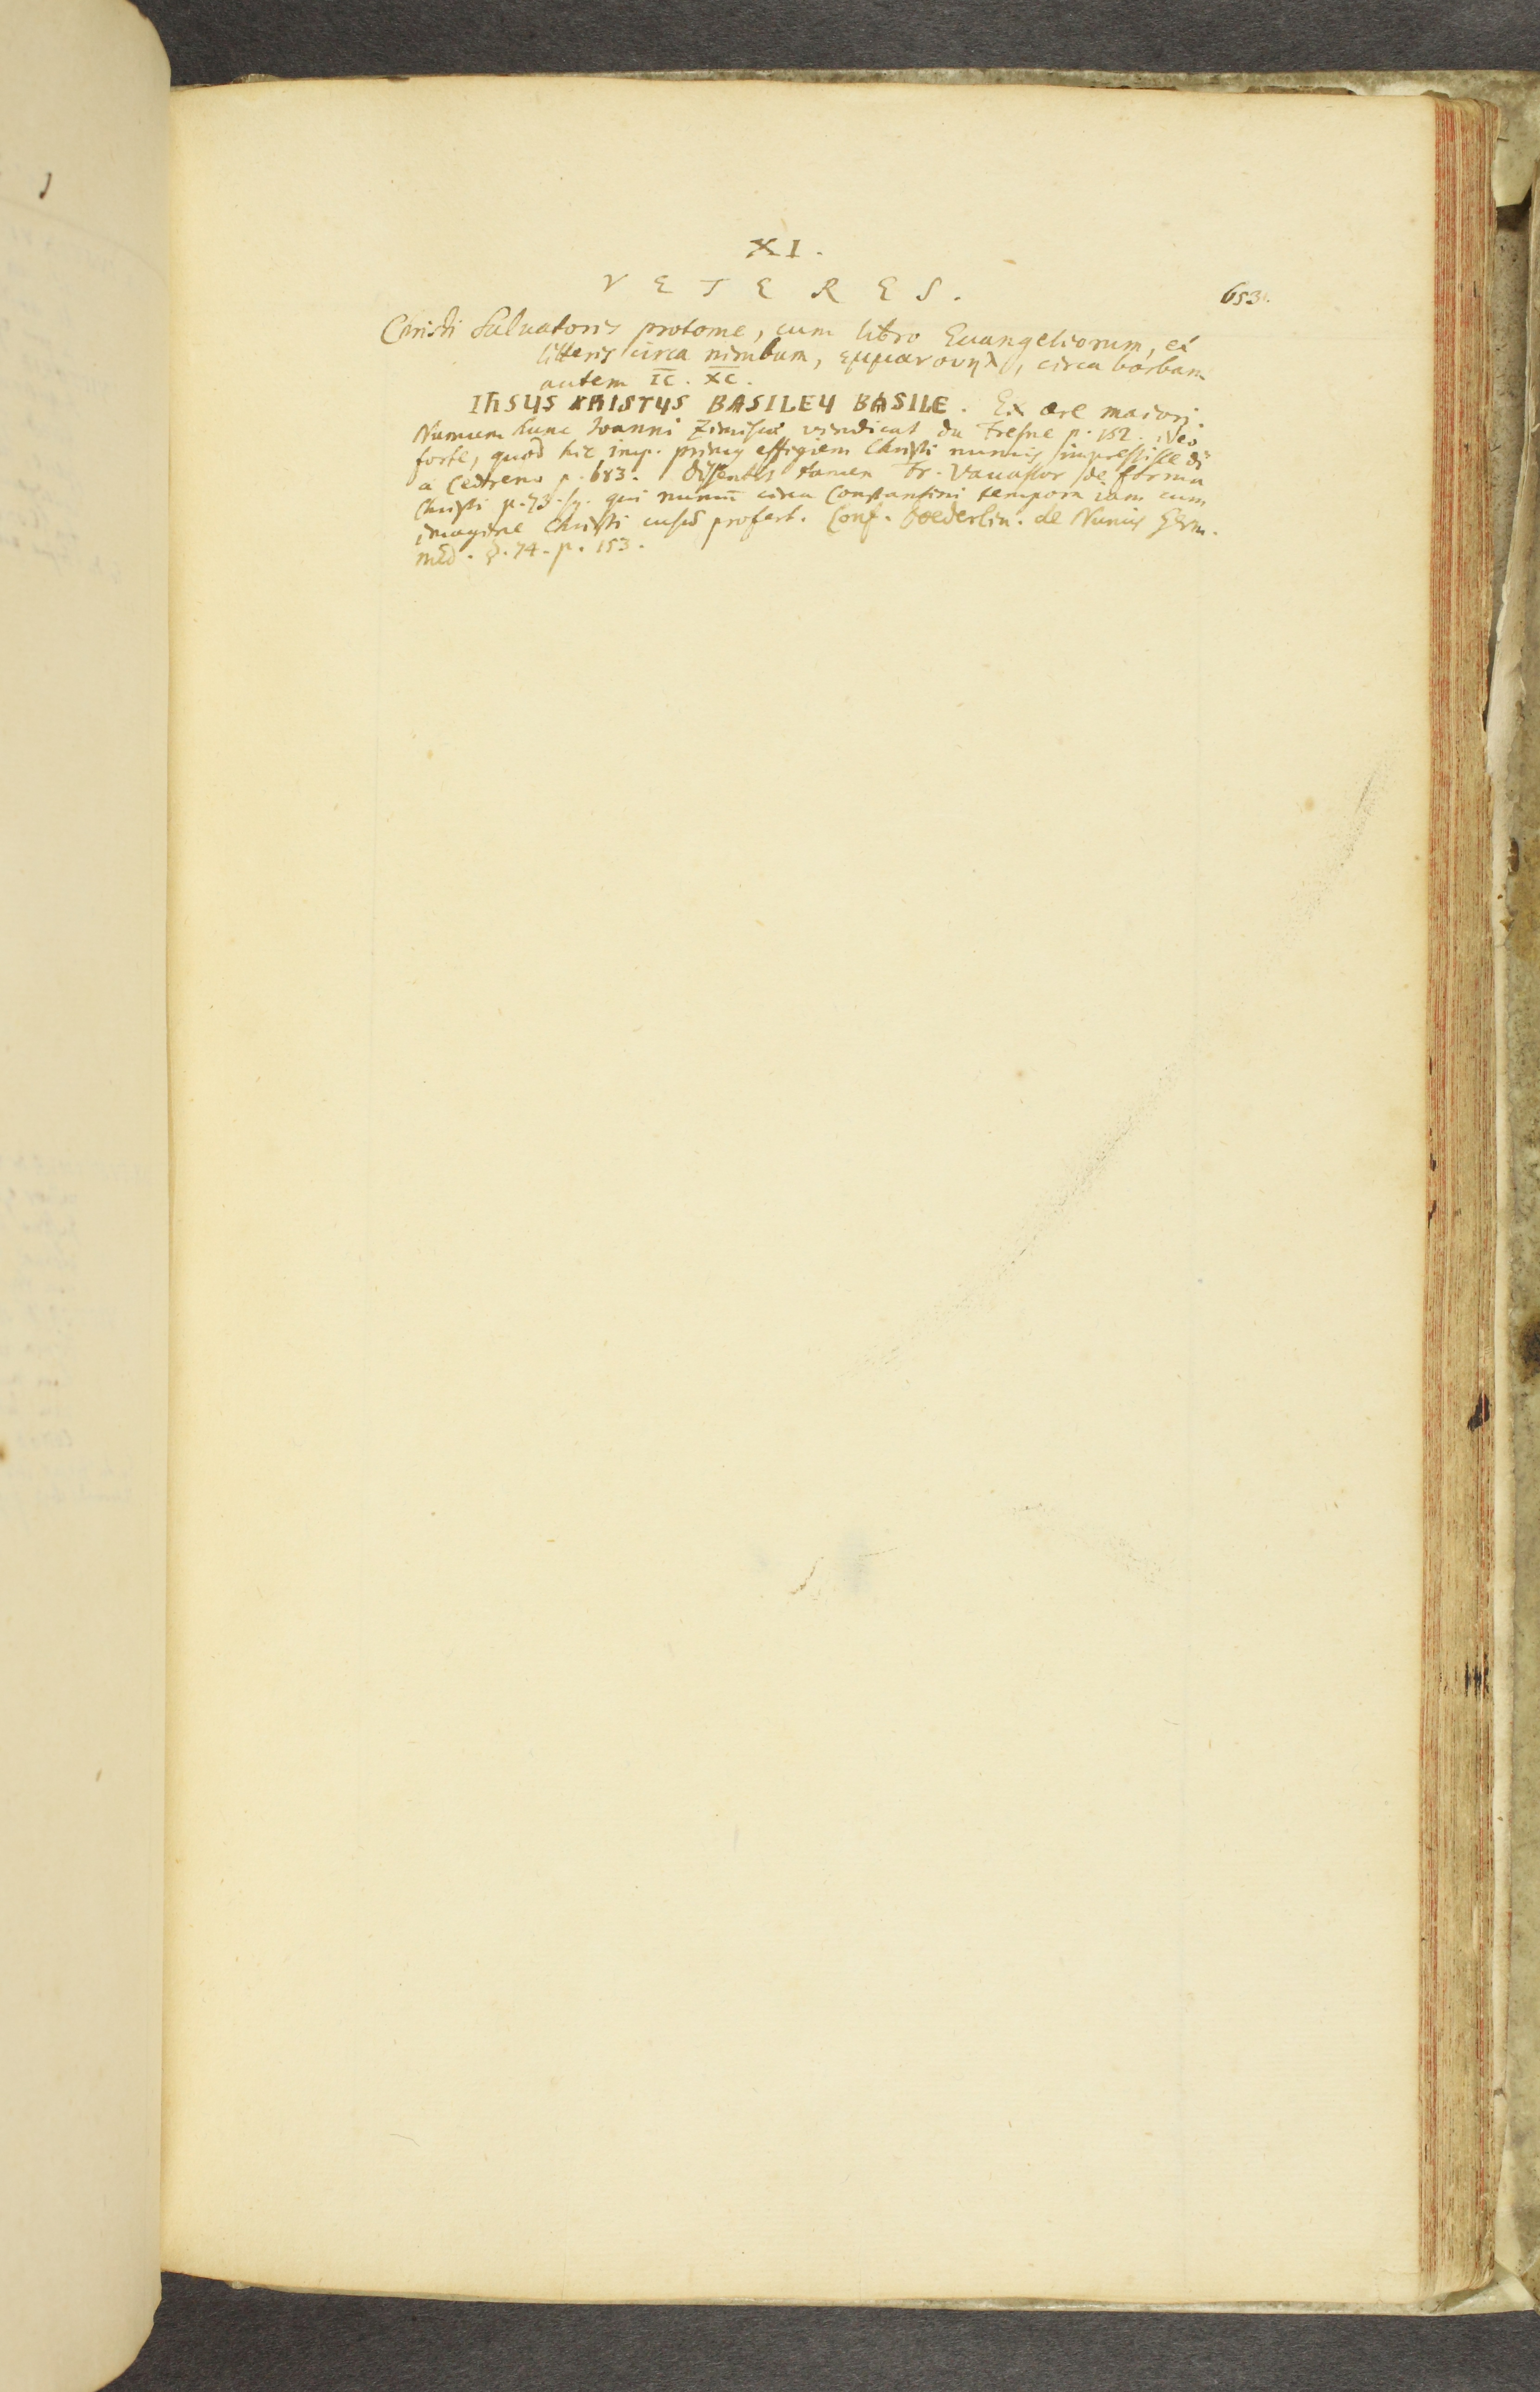 XI.
VETERES.
653.
Christi Saluatoris protome, cum libro Euangeliorum, et
litteris circa nimbum, εμμανουηλ, circa barbam
autem IC. XC.
IhSUS XRISTUS BASILEU BASILE. Ex aere maiori.
Numum hunc Ioanni Zimiscae vindicat du Fresne p. 152. ideo
forte, quod hic imp. primus effigiem Christi numis impressisse di
a Cedreno p. 683. dissentit tamen Fr. Vauassor de forma
Christi p. 73. sq. qui numum circa Constantini tempora iam cum
imagine Christi cusum profert. Conf. Doederlin. de Numis Germ.
med. §. 74. p. 153.